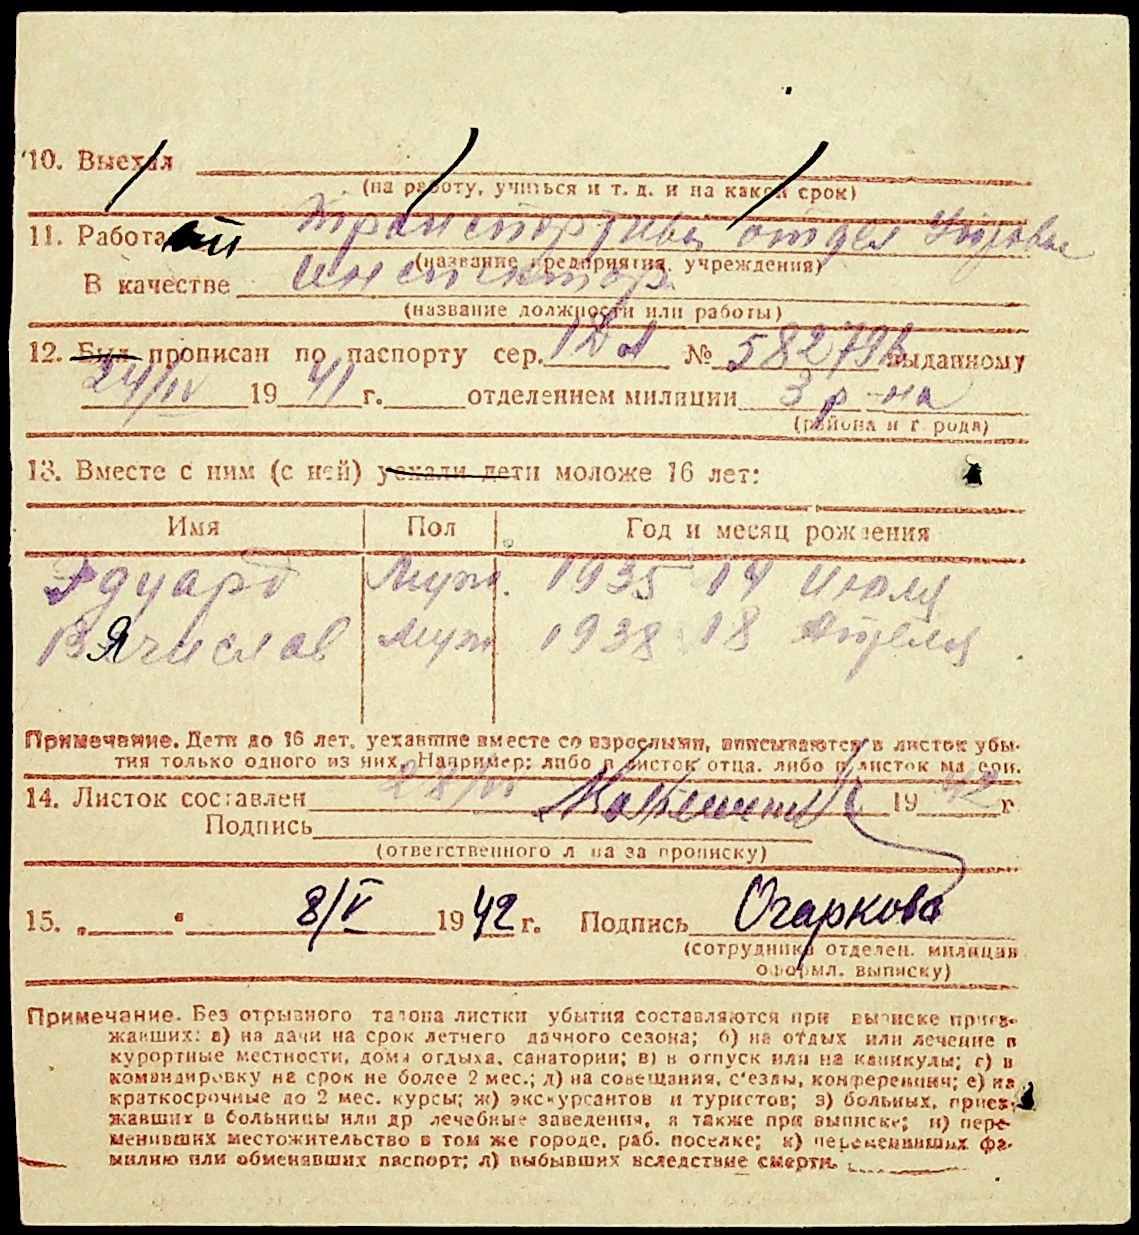 10. Выехал
(на работу, учиться и т. д. и на какой срок)
11. Работает Транспортный отдел
(название предприятия, учреждения)
В качестве инспектор
(название должности или работы)
12. Был прописан по паспорту сер. № 582792 выданному
24/IV 1941 г. отделением милиции 3 р-на
(района и города)
13. Вместе с ним (с ней) уехали дети моложе 16 лет:
Имя Пол Год и месяц рождения
Эдуард Муж. 1935 14 Июля
Вячислав Муж 1938 18 Апреля
Примечание. Дети до 16 лет, уехавшие вместе со взрослыми, вписываются в листок убы-
тия только одного из них. Например: либо в листок отца, либо в листок матери.
14. Листок составлен 28/IV 1942 г
Подпись
(ответственного лица за прописку)
15. „ " 8/V 1942 г. Подпись Огаркова
(сотрудника отделен. милиции
оформл. выписку)
Примечание. Без отрывного талона листки убытия составляются при выписке приез-
жавших: а) на дачи на срок летнего дачного сезона; б) на отдых или лечение в
курортные местности, дома отдыха, санатории; в) в отпуск или на каникулы; г) в
командировку на срок не более 2 мес.; д) на совещания, с'езды, конференции; е) на
краткосрочные до 2 мес. курсы; ж) экскурсантов и туристов; з) больных, приез-
жавших в больницы или др лечебные заведения, а также при выписке; и) пере-
менивших местожительство в том же городе, раб. поселке; к) переменивших фа-
милию или обменявших паспорт; л) выбывших вследствие смерти.